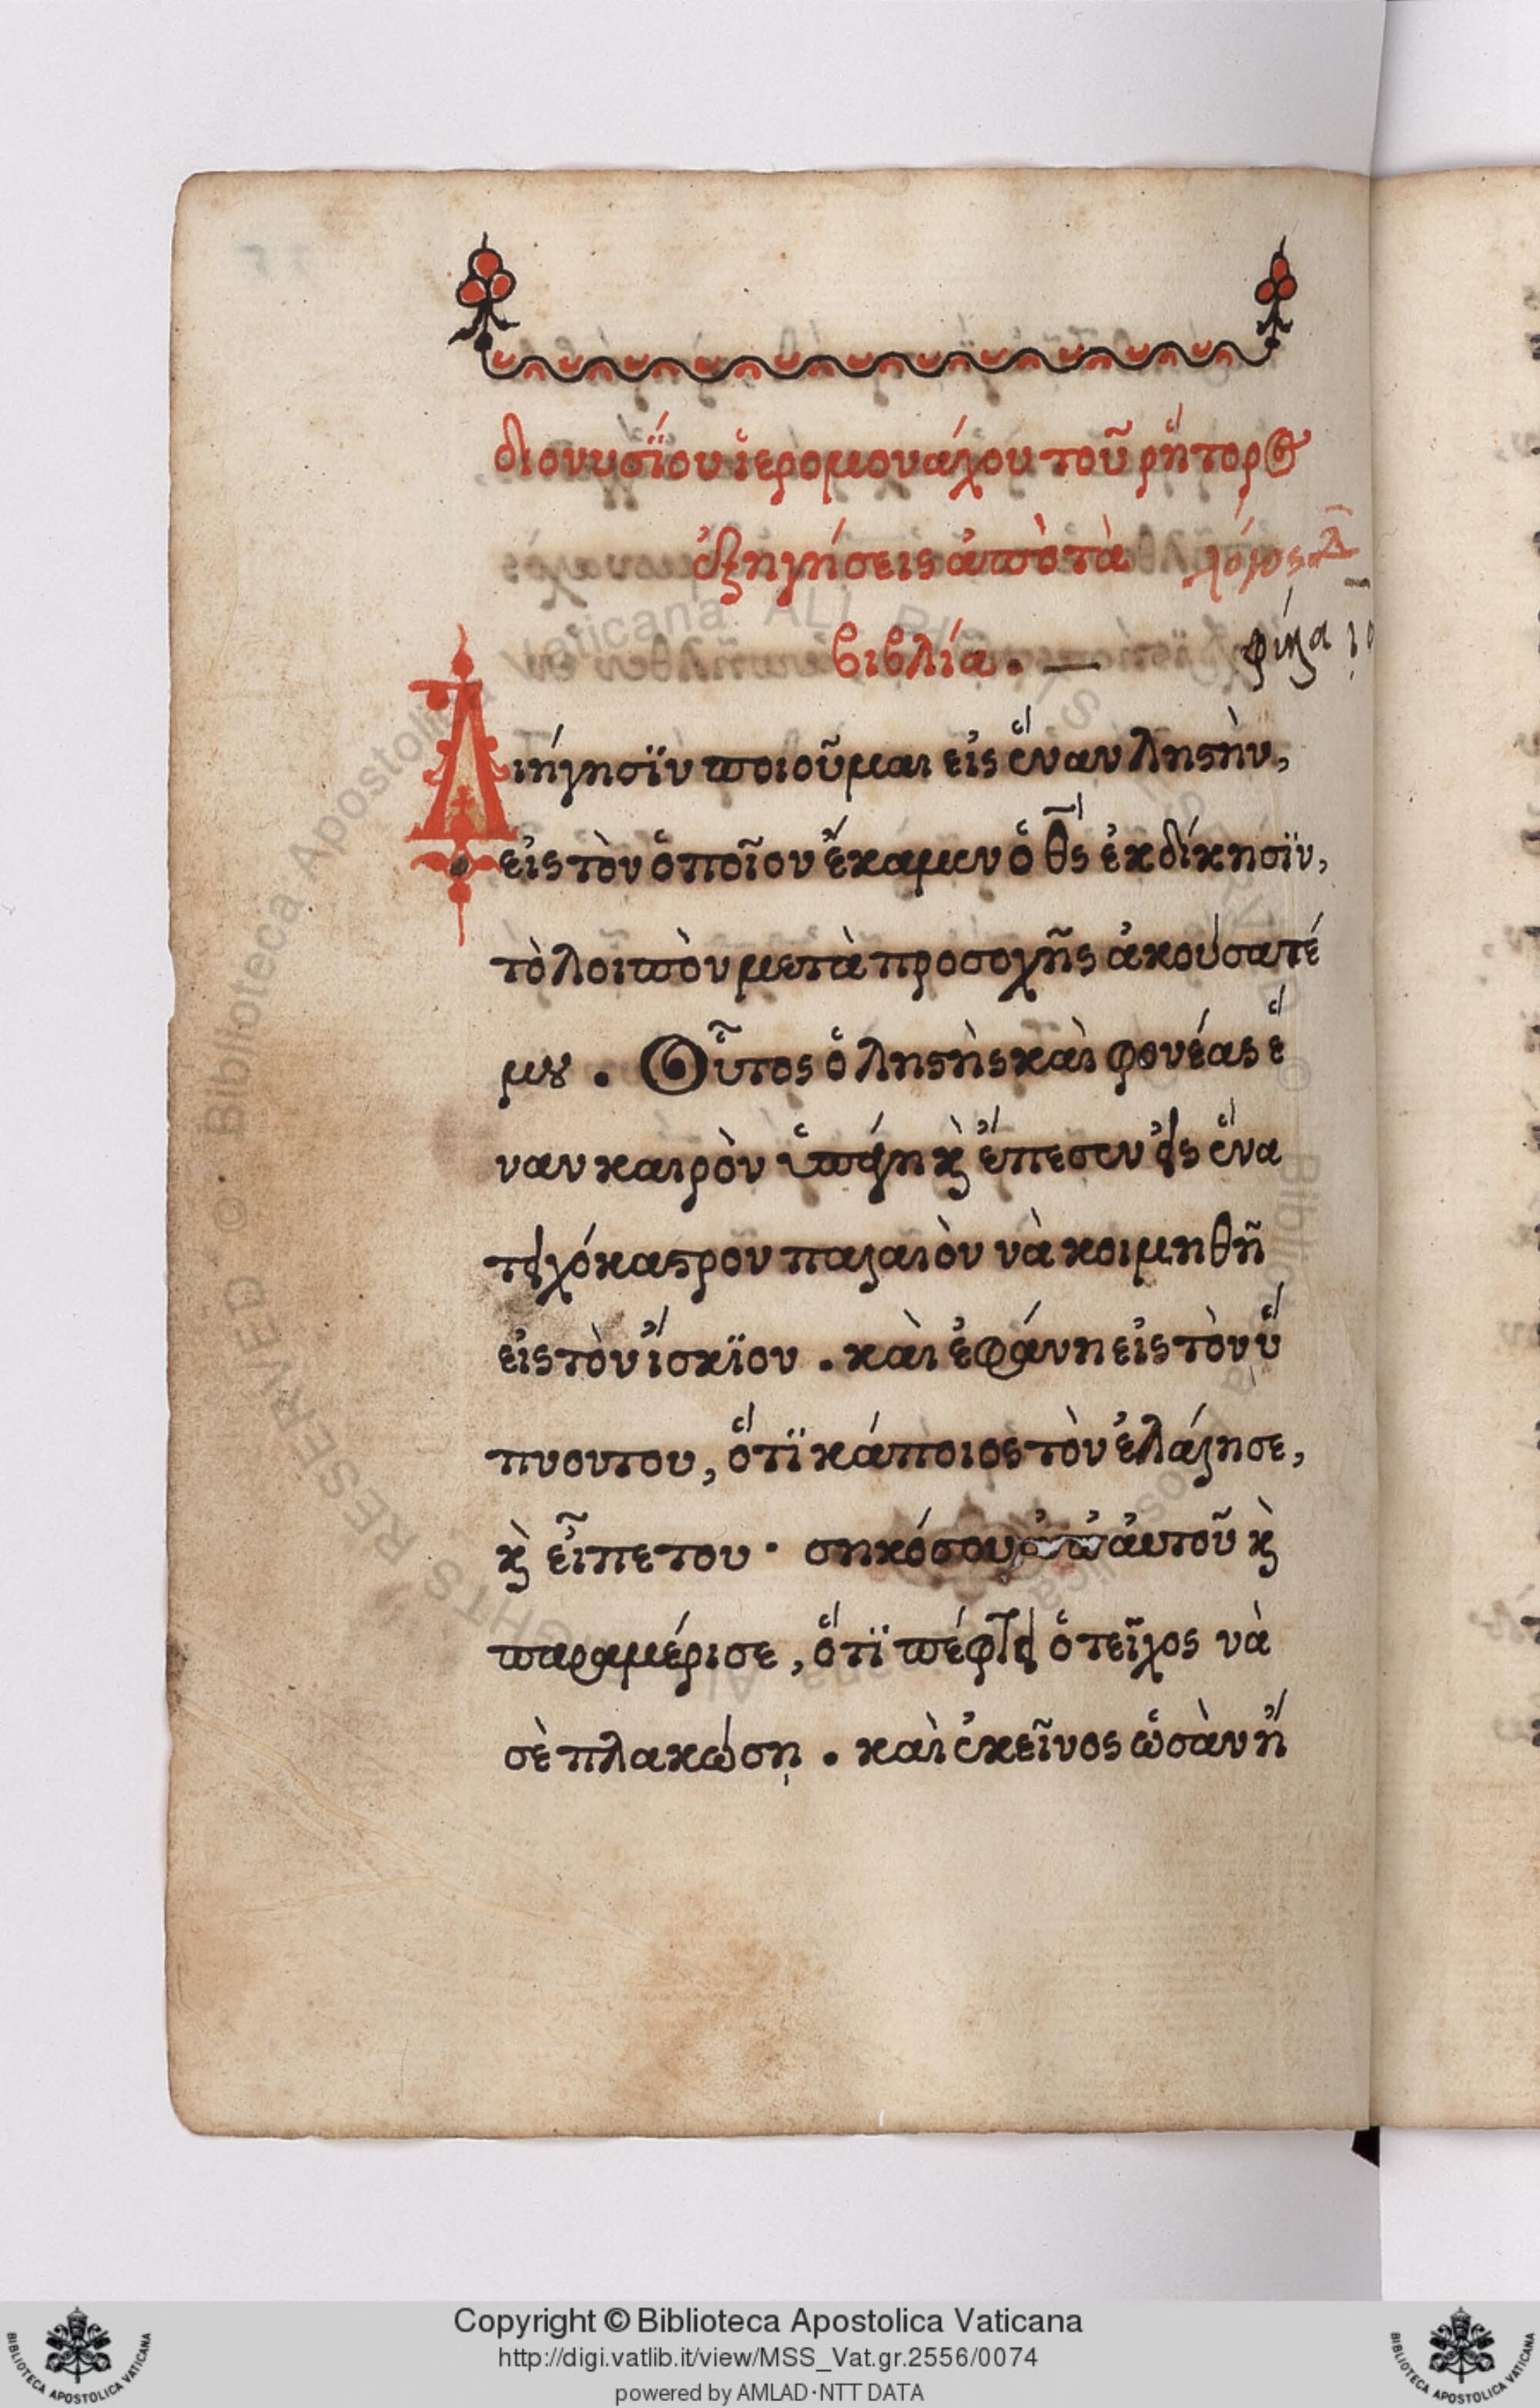 διονυσΐου ἱερομονάχου τοῦ ρήτορος
ἐξηγήσεις ἀπὸ τὰ λόγος Α
βιβλία. —
Διήγησϊν ποιοῦμαι εἰς ἕναν ληστὴν,
εἰς τὸν ὁποῖον ἔκαμεν ὁ θς ἐκδίκησϊν,
τὸ λοιπὸν μετὰ προσοχῆς ἀκούσατέ
μου. Οὗτος ὁ ληστὴς καὶ φονέας ἕ
ναν καιρὸν ὑπήγη κ ἔπεσεν εἰς ἕνα
τειχόκαστρον παλαιὸν νὰ κοιμηθῆ
εἰς τὸν ἴσκϊον. καὶ ἐφάνη εἰς τὸν ὕ
πνον του, ὅτϊ κάποιος τὸν ἐλάλησε,
κ εἶπε του· σηκόσου ἀπ ἀυτοῦ κ
παραμέρισε, ὅτϊ πέφτει ὁ τεῖχος νὰ
σὲ πλακώσῃ. καὶ ἐκεῖνος ὡσὰν ἤ
Copyright © Biblioteca Apostolica Vaticana
http://digi.vatlib.it/view/MSS_Vat.gr.2556/0074
powered by AMLAD·NTT DATA
BIBLIOTECA APOSTOLICA VATICANA
BIBLIOTECA APOSTOLICA VATICANA